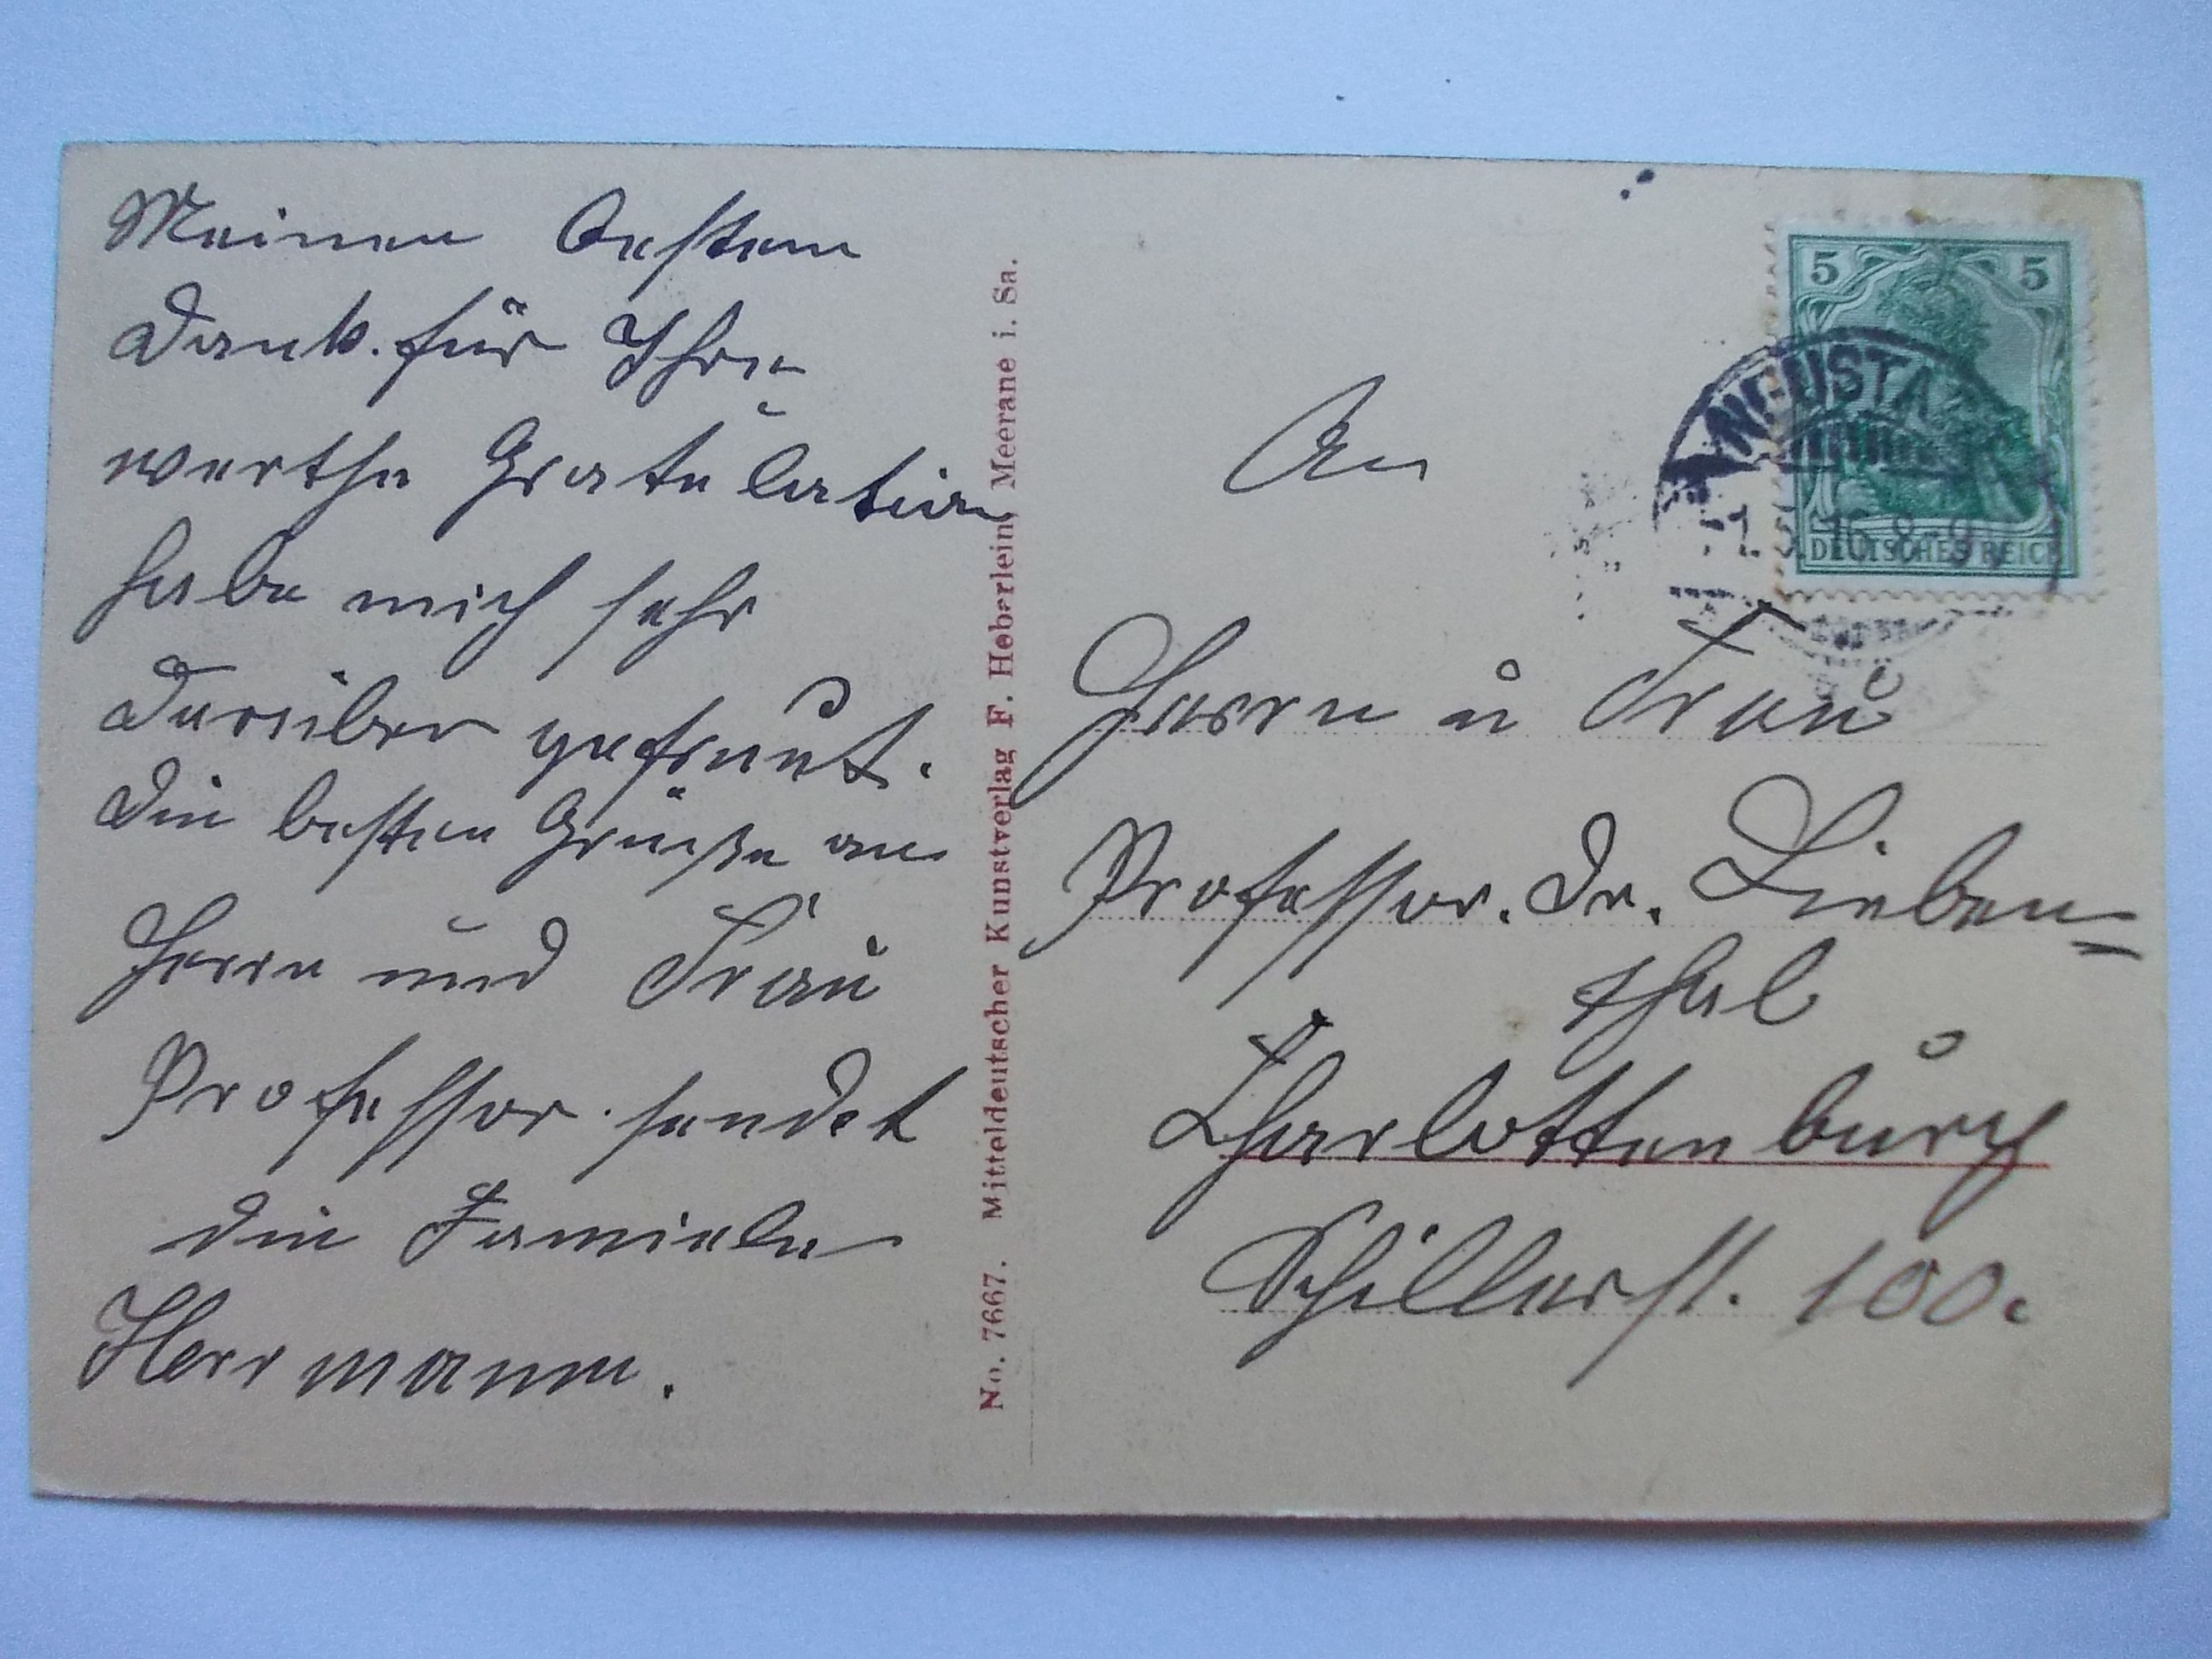 Meinen besten
Dank. für Ihre
werthe Gratulation
habe mich sehr
darüber gefreut.
Die besten Grüße an
Herrn und Frau
Professor. sendet
die Familie
Herrmann.
No. 7667. Mitteldeutscher Kunstverlag F. Heberlein, Meerane i. Sa.
5 5
DEUTSCHES REICH
NEUSTADT
1.5.16.8-9
An
Herrn u Frau
Professor. Dr. Lieben=
thal
Charlottenburg
Schillerst. 100.